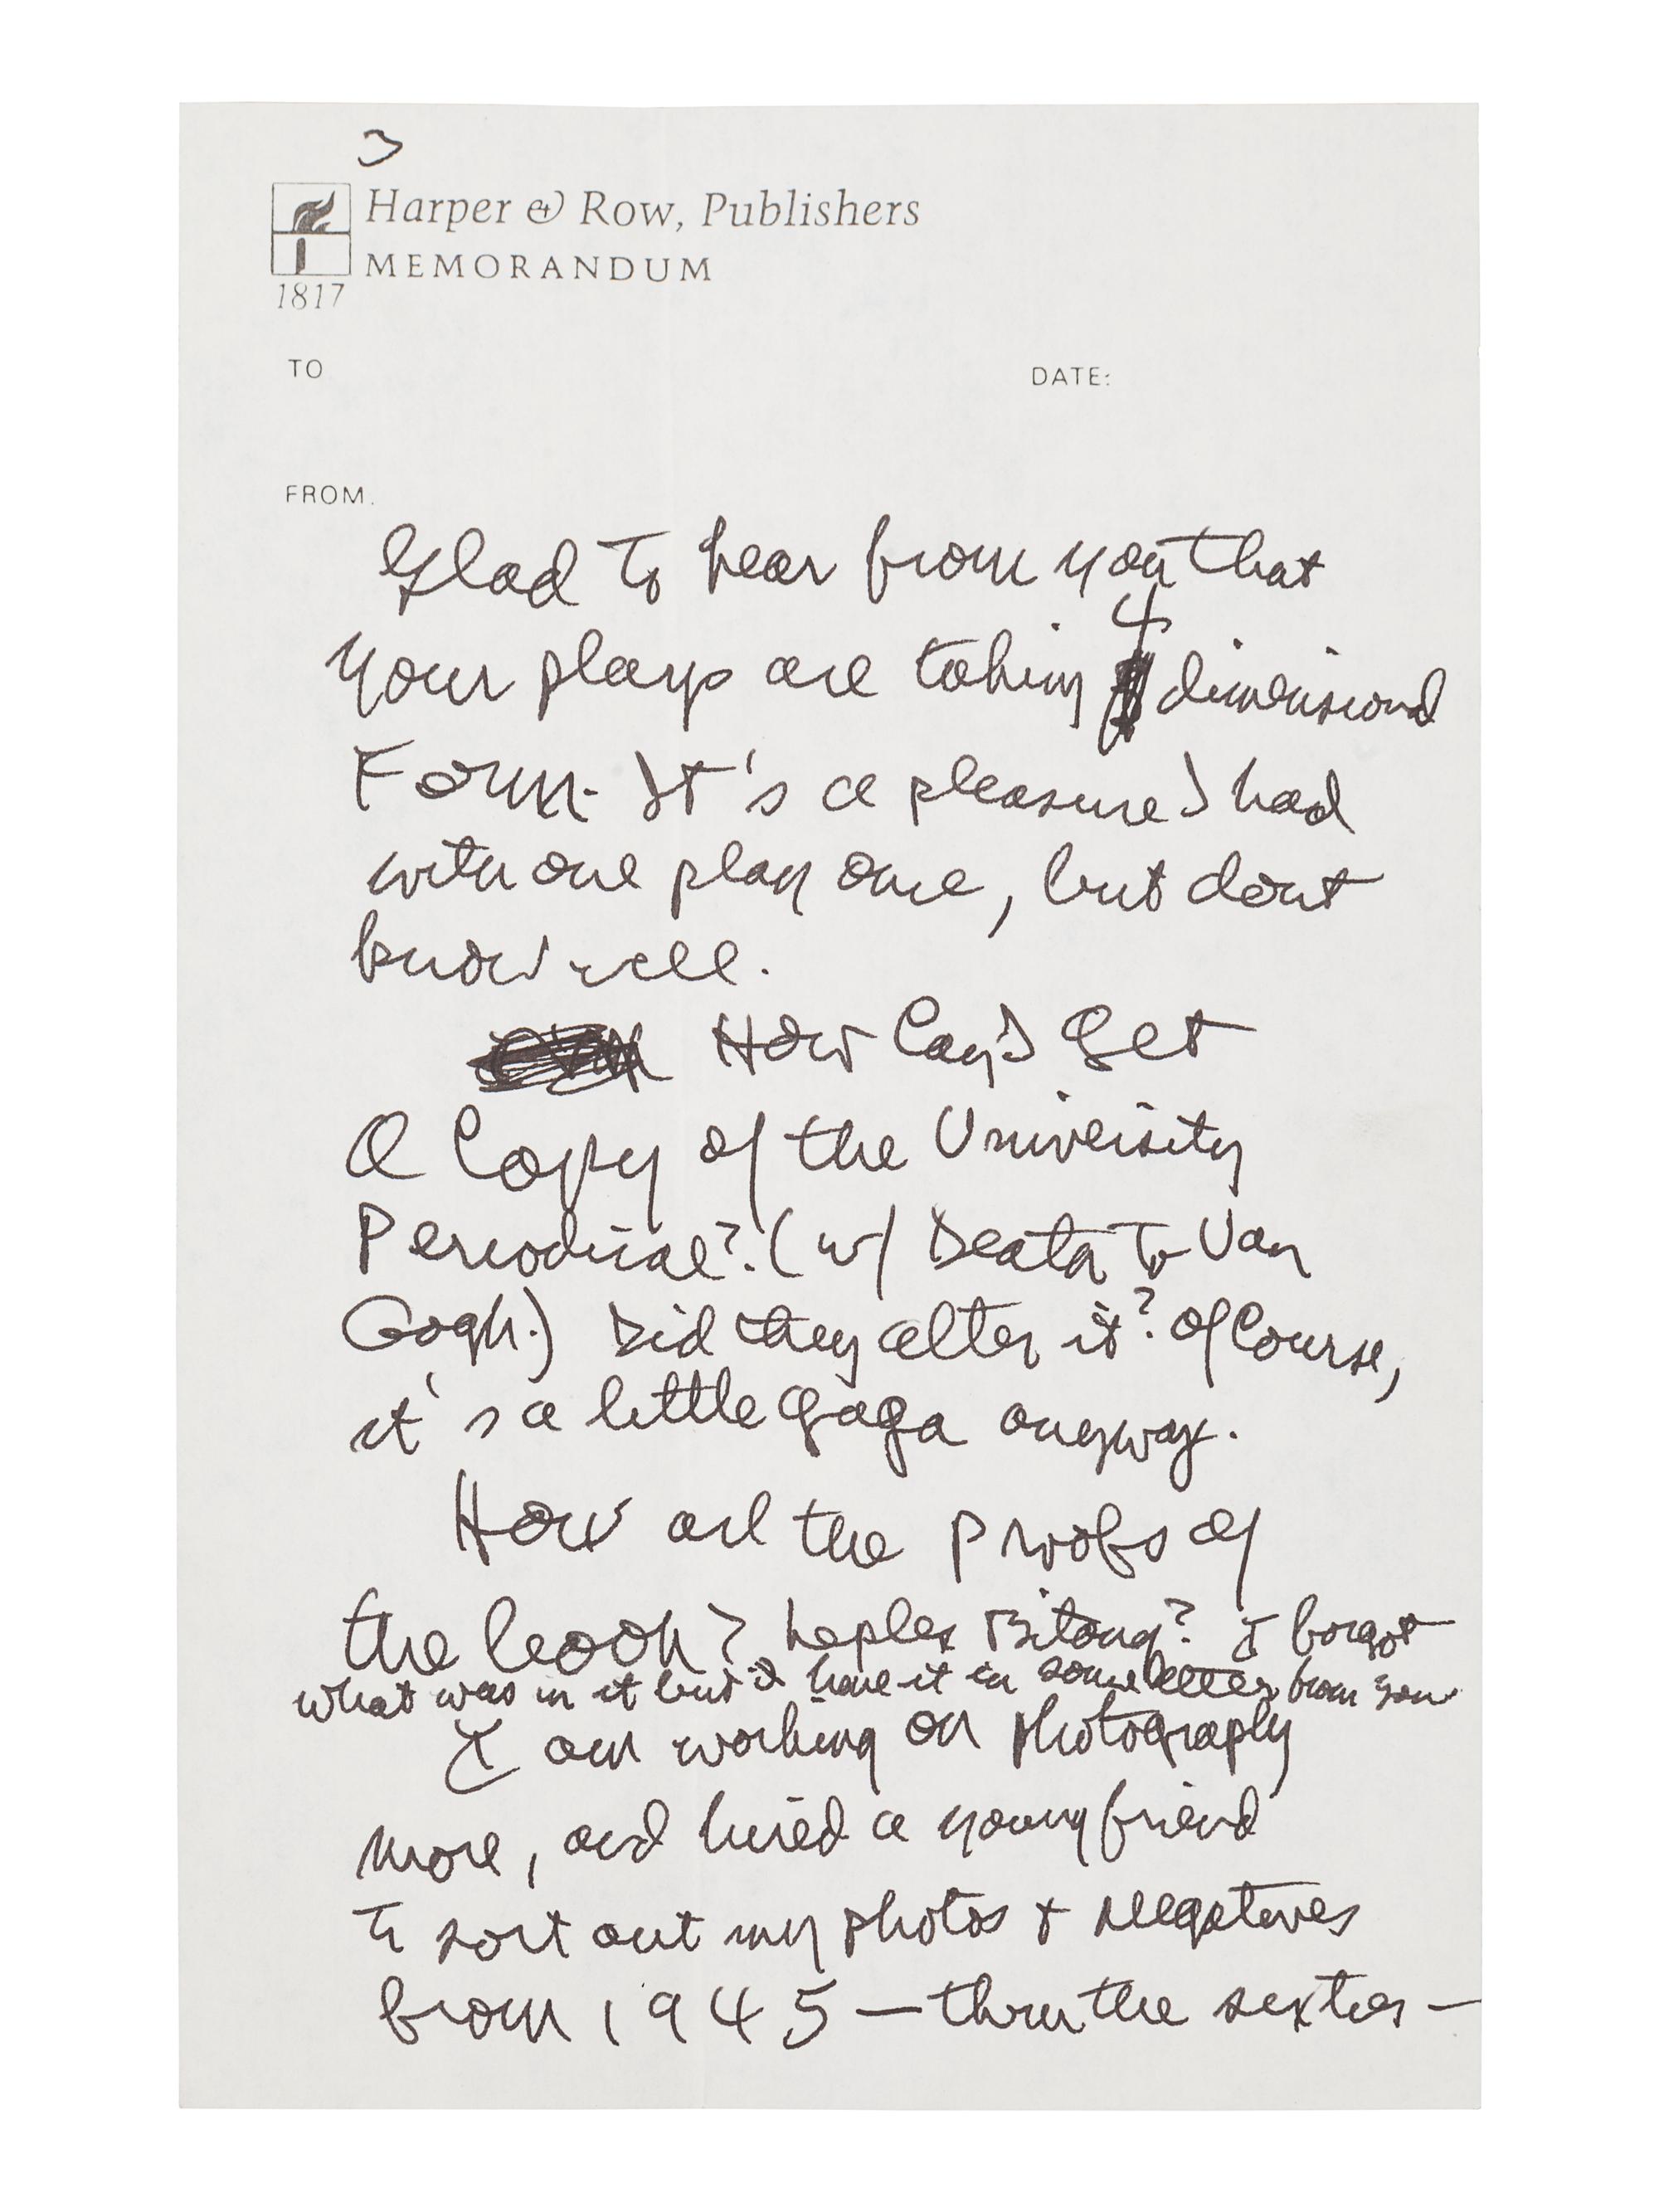 3
Harper & Row, Publishers
MEMORANDUM
1817
TO
DATE:
FROM.
Glad to hear from you that
your plays are taking 4 dimensional
Form. It's a pleasure I had
with one play once, but dont
know well.
How Can I Get
a Copy of the University
Periodical? (w/ Death to Van
Gogh.) Did they alter it? Of Course,
it's a little gaga anyway.
How are the proofs of
the book? Naples Bitong? I forgot
what was in it but I have it in some letter from you
I am working on photography
more, and hired a young friend
to sort out my photos + negatives
from 1945 — thru the sixties —